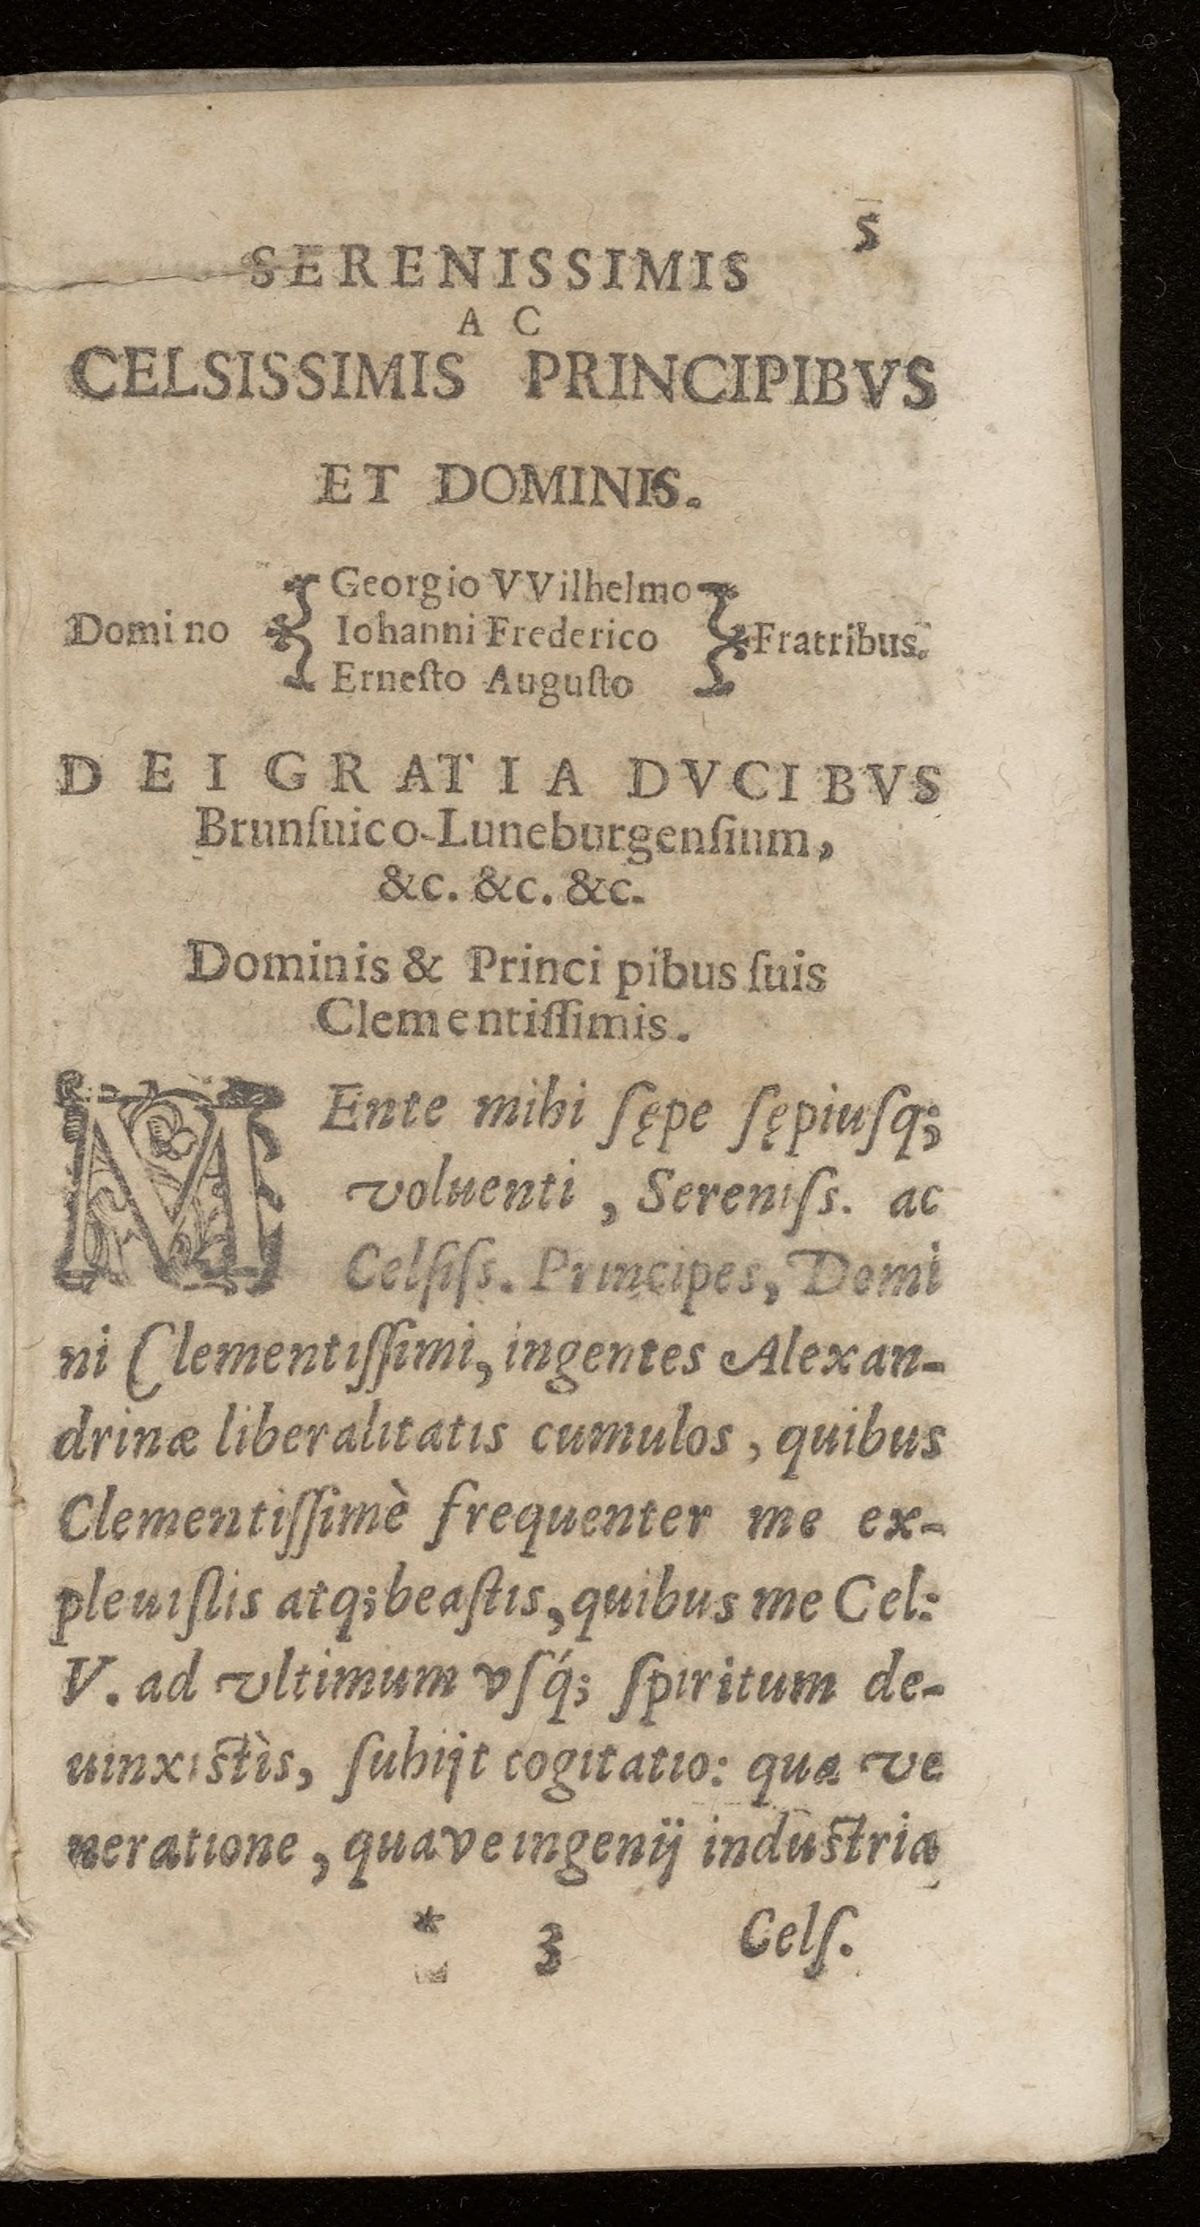 5
SERENISSIMIS
AC
CELSISSIMIS PRINCIPIBVS
ET DOMINIS.
Georgio VVilhelmo
Domino Iohanni Frederico Fratribus.
Erneſto Auguſto
DEI GRATIA DVCIBVS
Brunſuico-Luneburgenſium,
&c. &c. &c.
Dominis & Principibus ſuis
Clementiſſimis.
MEnte mihi ſępe ſępiuſq;
voluenti, Sereniſs. ac
Celſiſs. Principes, Domi
ni Clementiſſimi, ingentes Alexan-
drinæ liberalitatis cumulos, quibus
Clementiſſimè frequenter me ex-
pleuiſtis atq; beaſtis, quibus me Cel:
V. ad vltimum vſq́; ſpiritum de-
uinxiſtìs, ſubijt cogitatio: qua ve
neratione, quave ingenij induſtria
* 3 Celſ.